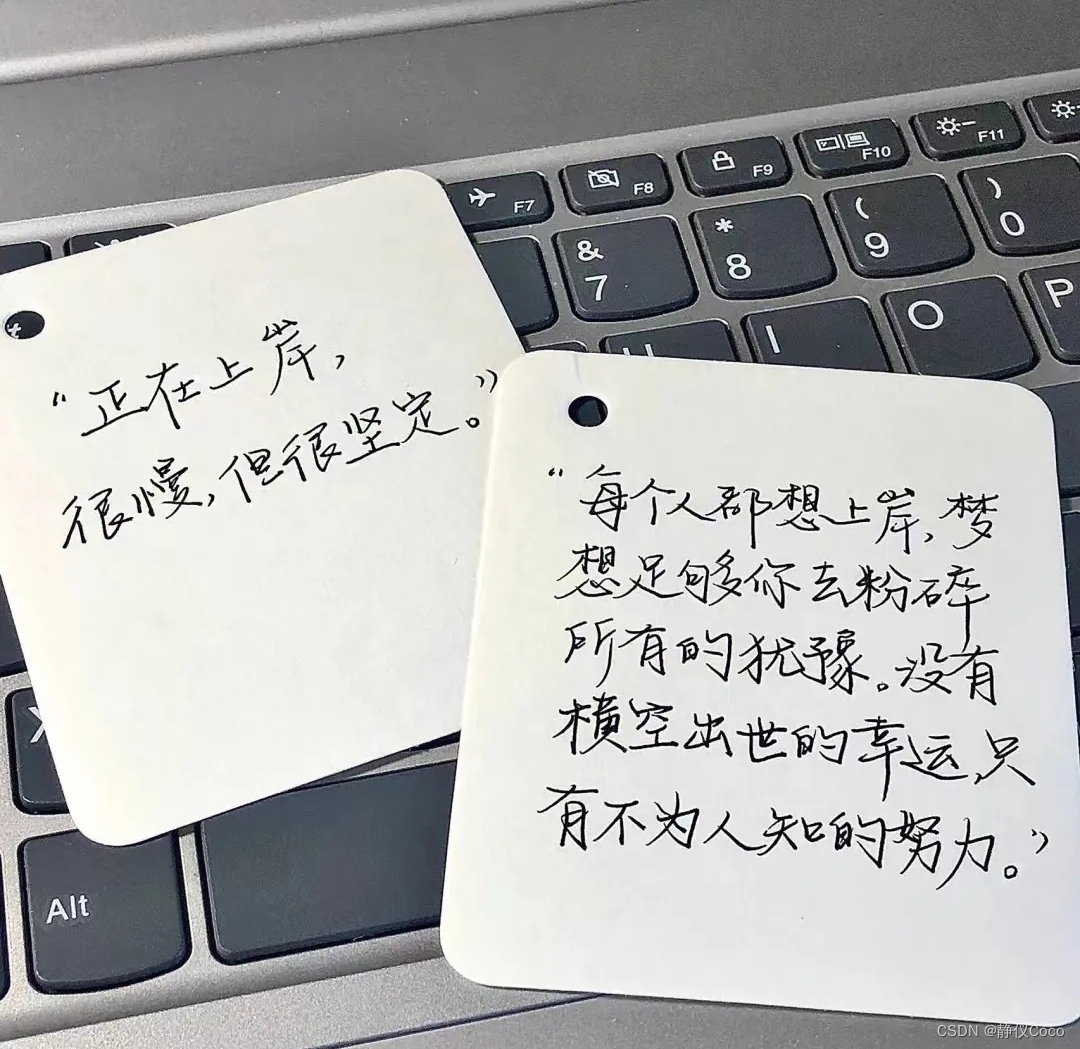 “正在上岸，
很慢，但很坚定。”
“每个人都想上岸，梦
想足够你去粉碎
所有的犹豫。没有
横空出世的幸运，只
有不为人知的努力。”
F7
F8
F9
F10
F11
&
7
*
8
(
9
)
0
U
I
O
P
X
Alt
CSDN @静仪Coco